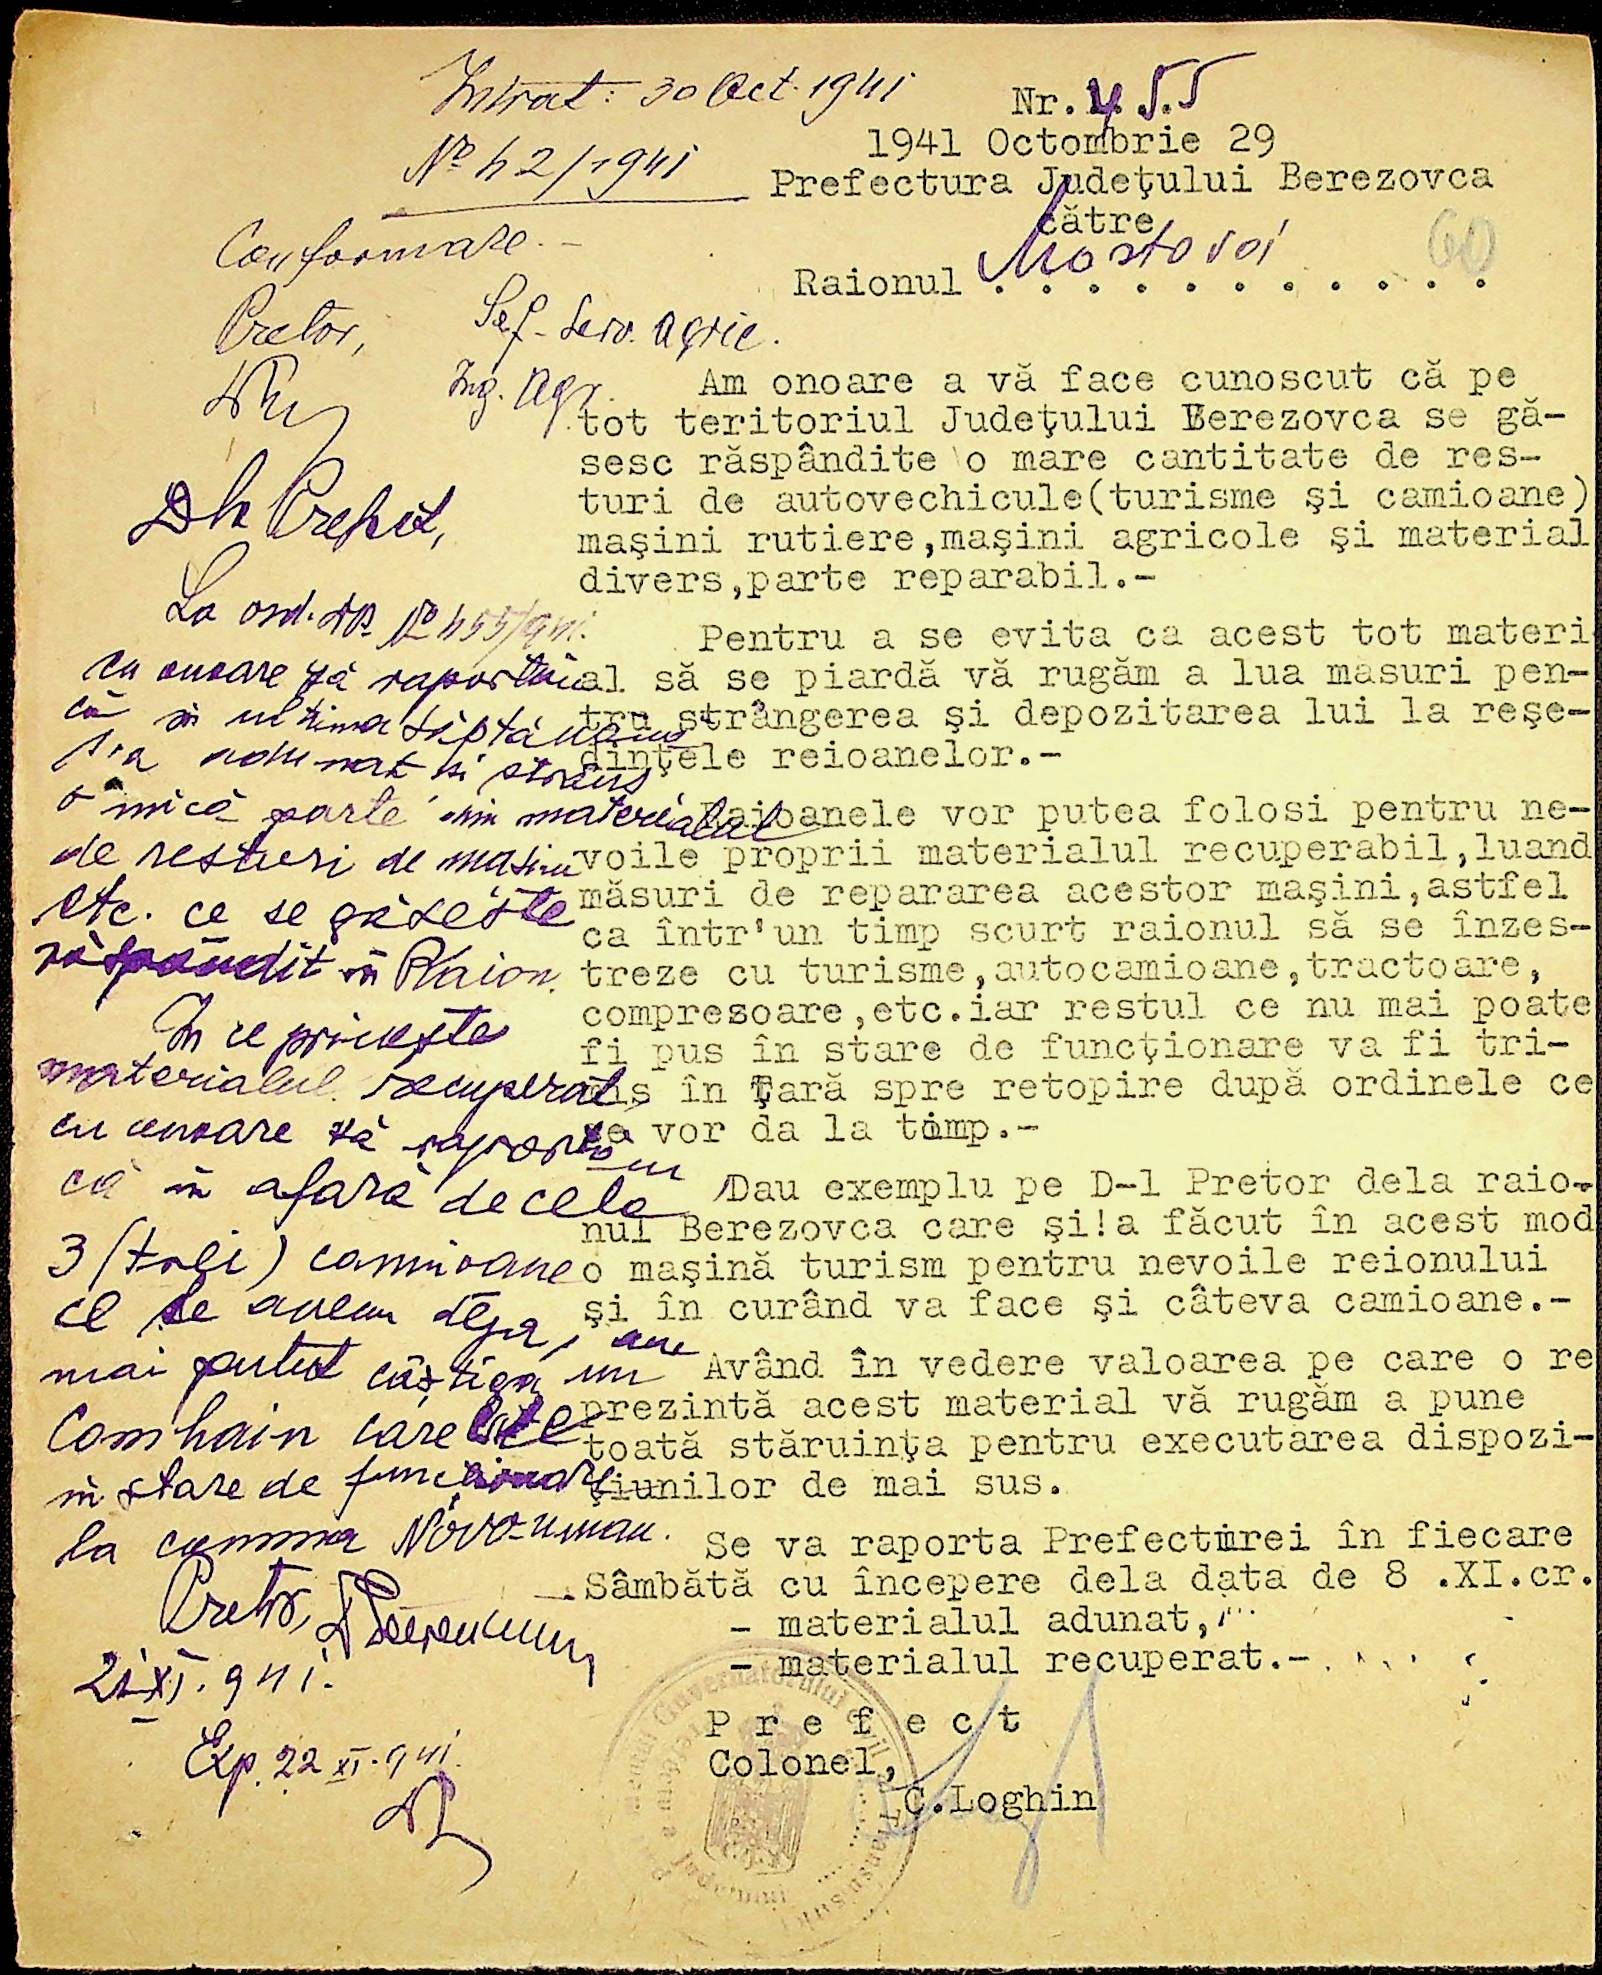 Intrat: 30 Oct. 1941
Nº 42/1941
Nr. 455
1941 Octombrie 29
Prefectura Judeţului Berezovca
către
Raionul Mostovoi
60
Conformare.-
Pretor,
Şef-Serv. Agric.
Ing. Agr.
Am onoare a vă face cunoscut că pe
tot teritoriul Judeţului Berezovca se gă-
sesc răspândite o mare cantitate de res-
turi de autovechicule(turisme şi camioane)
maşini rutiere,maşini agricole şi material
divers,parte reparabil.-
Pentru a se evita ca acest tot materi
al să se piardă vă rugăm a lua masuri pen-
tru strângerea şi depozitarea lui la reşe-
dinţele reioanelor.-
Raioanele vor putea folosi pentru ne-
voile proprii materialul recuperabil,luand
măsuri de repararea acestor maşini,astfel
ca într'un timp scurt raionul să se înzes-
treze cu turisme,autocamioane,tractoare,
compresoare,etc.iar restul ce nu mai poate
fi pus în stare de funcţionare va fi tri-
mis în Ţară spre retopire după ordinele ce
se vor da la timp.-
Dau exemplu pe D-l Pretor dela raio-
nul Berezovca care şi!a făcut în acest mod
o maşină turism pentru nevoile reionului
şi în curând va face şi câteva camioane.-
Având în vedere valoarea pe care o re
prezintă acest material vă rugăm a pune
toată stăruinţa pentru executarea dispozi-
ţiunilor de mai sus.
Se va raporta Prefecturei în fiecare
Sâmbătă cu începere dela data de 8 .XI.cr.
- materialul adunat,
- materialul recuperat.-
P r e f e c t
Colonel,
C.Loghin
Dle Prefect,
La ord. Dv. Nº 455/941.
cu onoare vă raportăm
că în ultima săptămână
s'a adunat şi strâns
o mică parte din materialul
de resturi de maşini
etc. ce se găseşte
răspândit în Raion.
In ce priveşte
materialul recuperat,
cu onoare vă raportăm
că în afară de cele
3 (trei) camioane
ce le avem deja, am
mai putut câştiga un
Combain care este
în stare de funcţionare
la comuna Novo-Uman.
Pretor,
21 XI. 941.
Exp. 22 XI. 941.